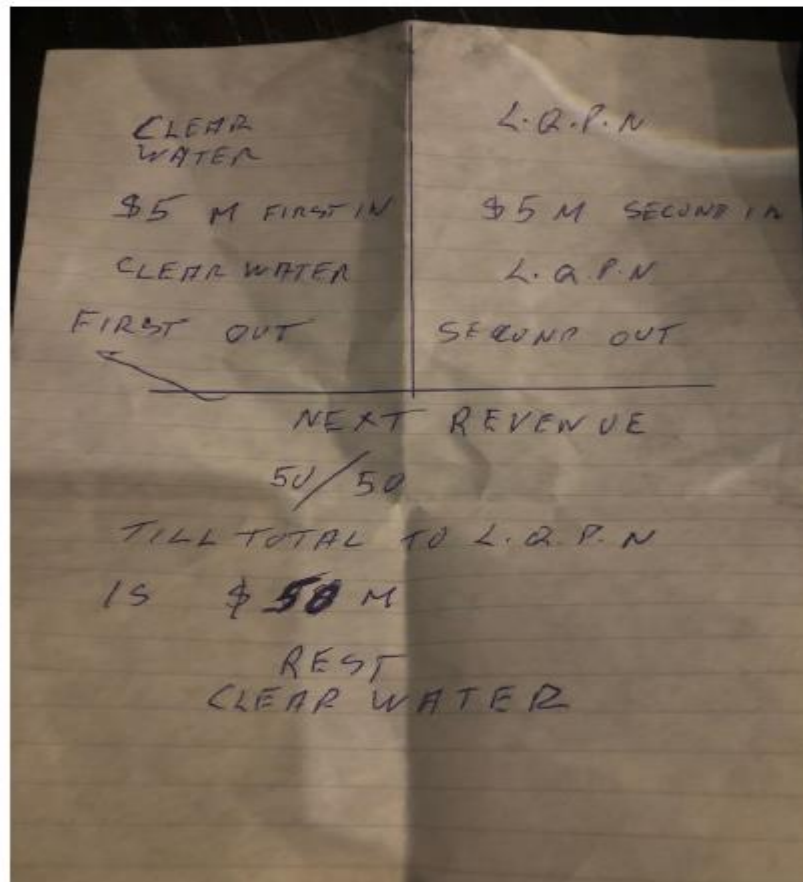 CLEAR
WATER
$5 M FIRST IN
CLEAR WATER
FIRST OUT
L.Q.P.N
$5 M SECOND IN
L.Q.P.N
SECOND OUT
NEXT REVENUE
50/50
TILL TOTAL TO L.Q.P.N
IS $ 50 M
REST
CLEAR WATER